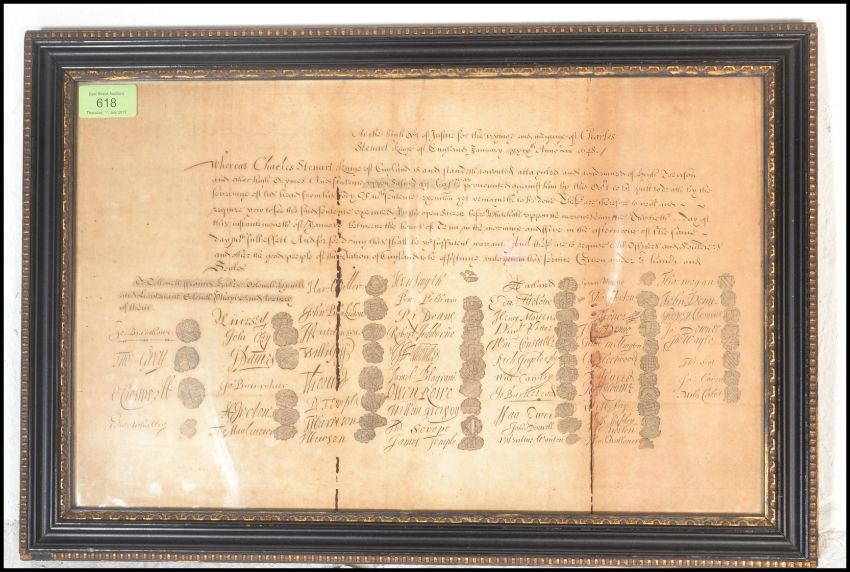 East Bristol Auctions
618
Thursday, 11 July 2019
At the high Cort of Justice for the tryinge and iudginge of Charles
Steuart Kinge of England January xxixth Anno Dni 1648./
Whereas Charles Steuart Kinge of England is and standeth convicted attaynted and condemned of High Treason
and other high Crymes And sentence uppon Saturday last was pronounced against him by this Cort to be putt to death by the
severinge of his head from his body Of wch sentence execucon yet remayneth to be done These are therefore to will and
require you to see the said sentence executed In the open Streete before Whitehall uppon the morrowe being the Thirtieth day of
this instante moneth of January Betweene the houres of Tenn in the morninge and Five in the afternoone of the same
day wth full effect And for soe doing this shall be yor sufficient warrant And these are to require All Officers and Souldiers
and other the good people of this Nation of England to be assistinge unto you in this service Given under or hands and
Seales
To Collonell Francis Hacker Colonell Huncks
and Lieutenant Colonell Phayre and to every
of them
Jo Bradshawe
Tho Grey
O Cromwell
Edw Whalley
M Livesey
John Okey
J Danvers
Jo Bourchier
H Ireton
Tho Mauleverer
Har Waller
John Blakiston
J Hutchinson
Willi Goff
Tho Pride
P Temple
T Harrison
J Hewson
Hen Smyth
Per Pelham
Ri Deane
Robert Tichborne
Daniel Blagrave
Owen Rowe
William Purefoy
Ad Scrope
James Temple
A Garland
Edm Ludlowe
Henry Marten
Vinct Potter
Wm Constable
Rich Ingoldesby
Will Cawley
Jo Barkstead
Isaa Ewer
John Dixwell
Valentine Wauton
Symon Mayne
Tho Horton
J Jones
John Penne
Gilbt Millington
G Fleetwood
J Alured
Robt Lilburne
Will Say
Greg Norton
Tho Challoner
Tho Wogan
John Venn
Gregory Clement
Jo Downes
Tho Wayte
Tho Scot
Jo Carew
Miles Corbet